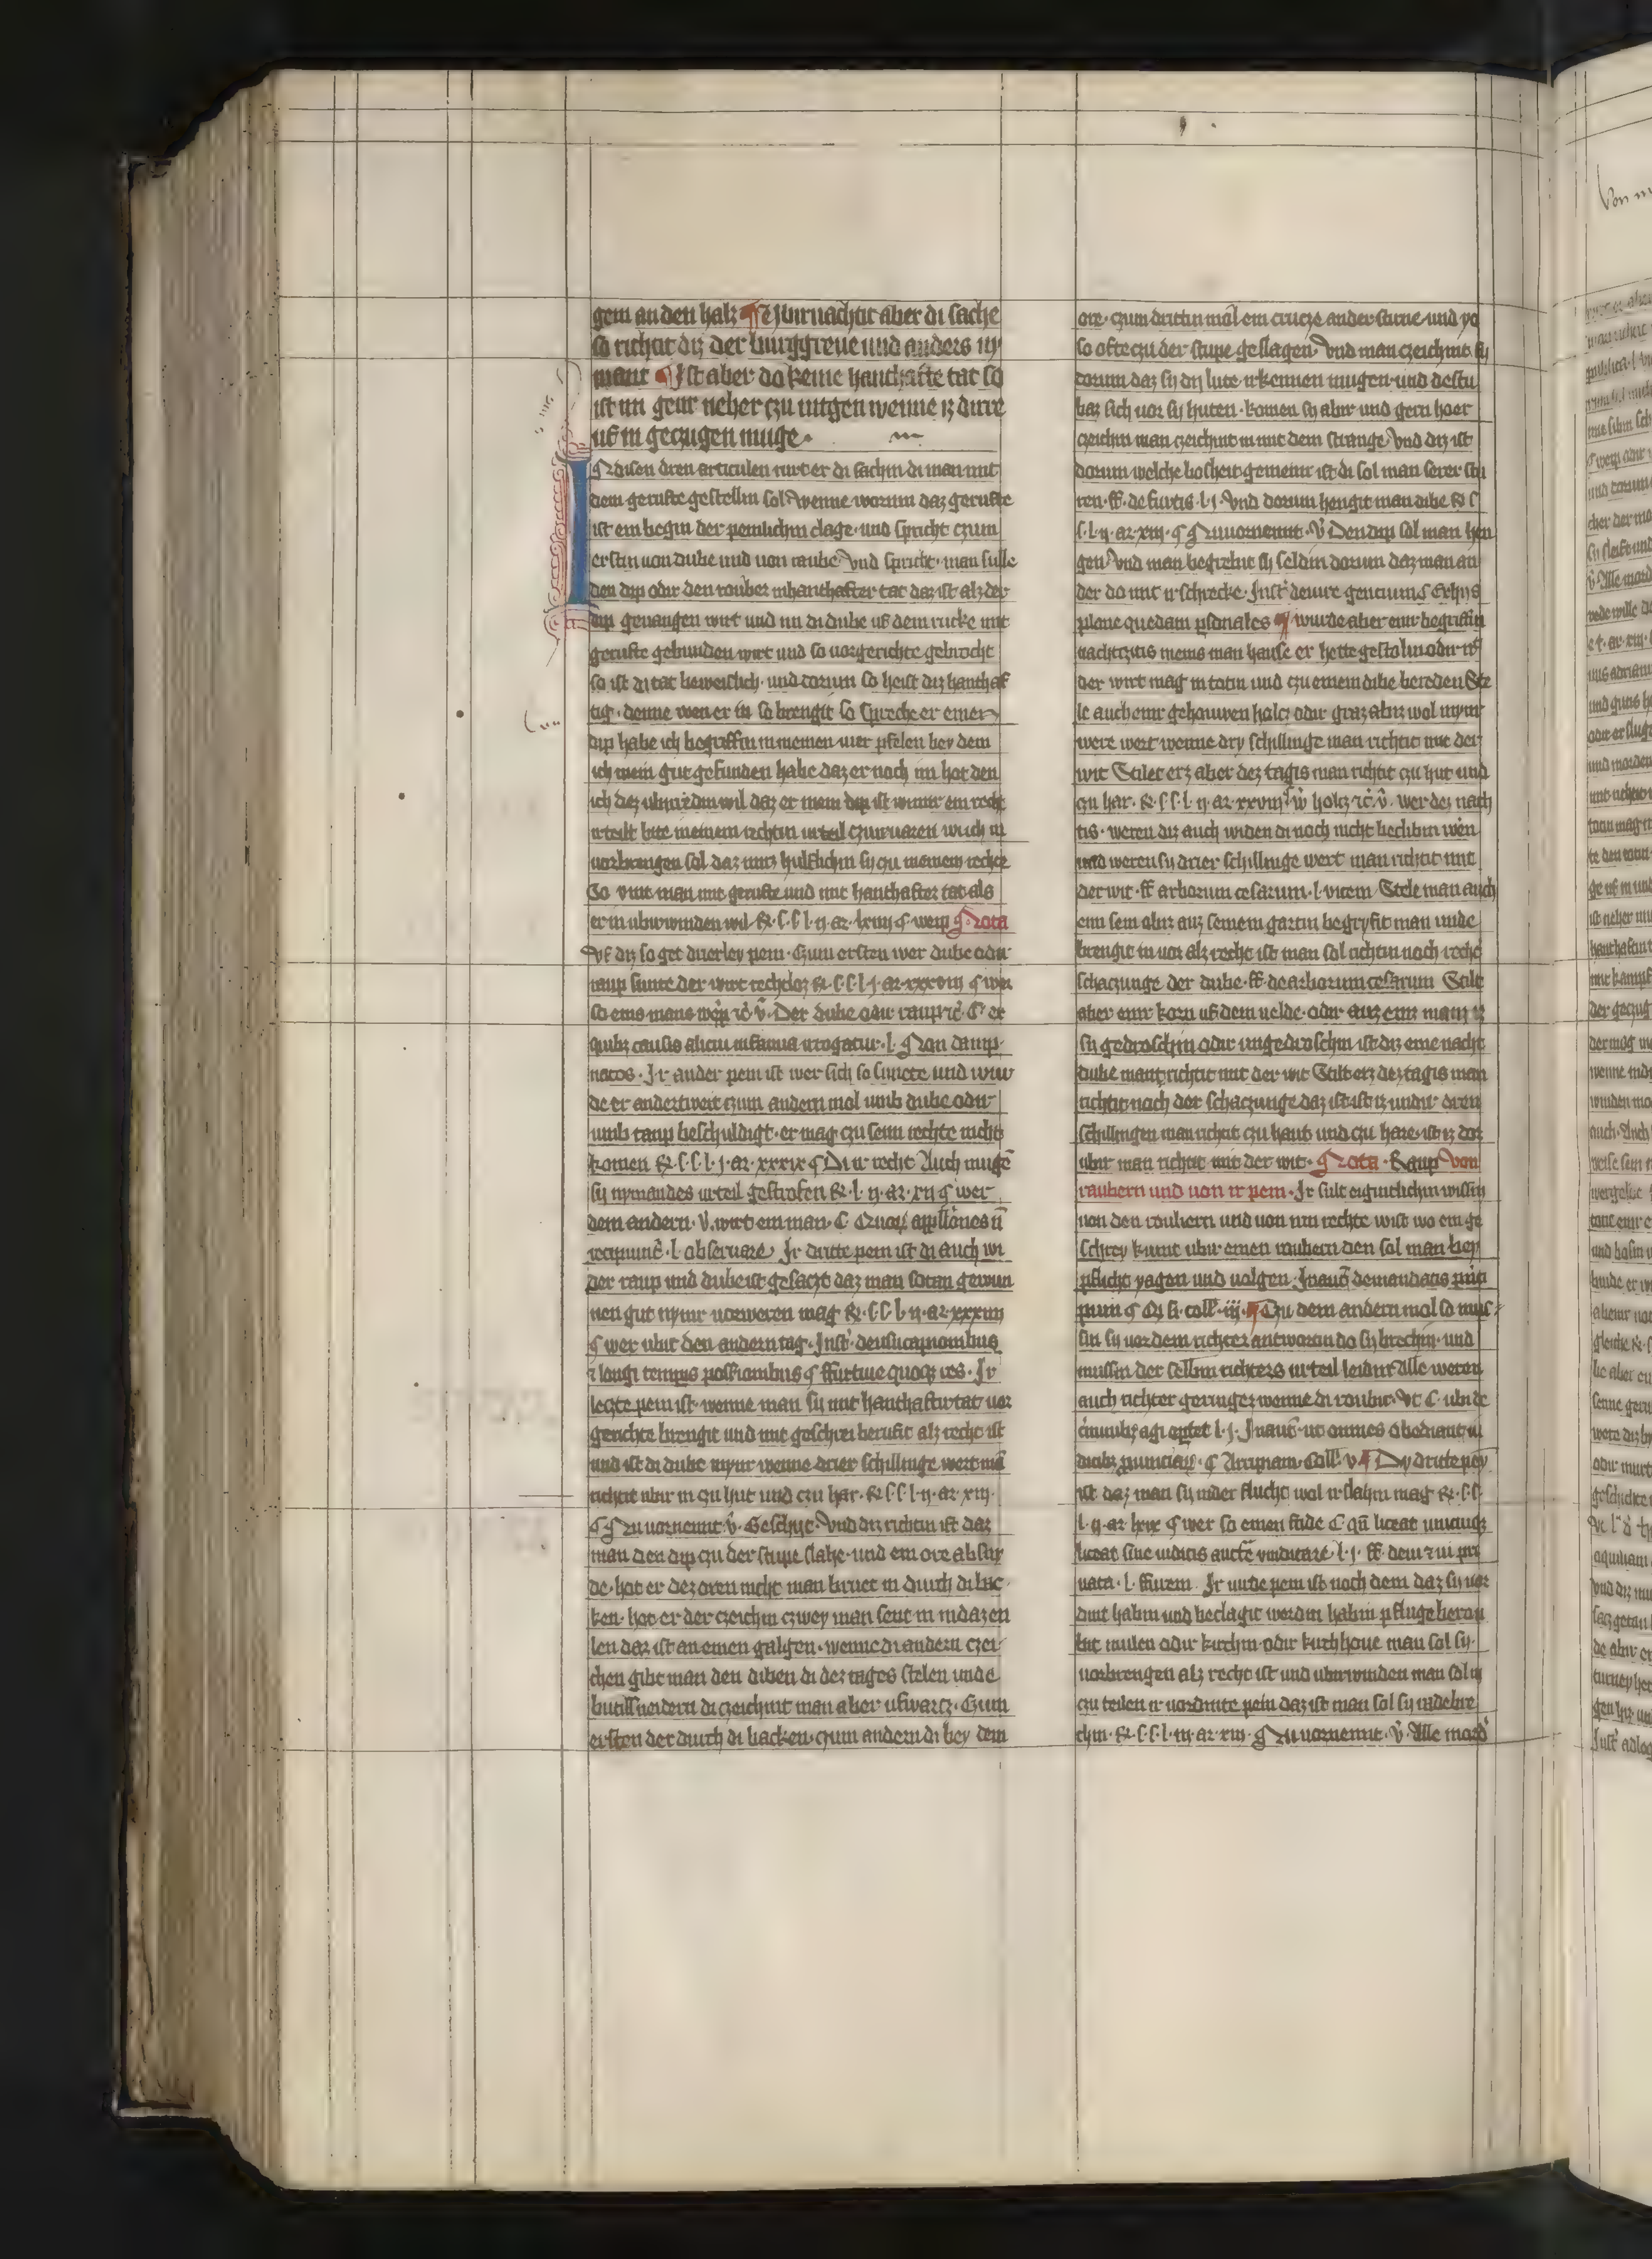 gem an den halz ¶ Ubirnachtit aber di sache
so richtit diz der burggreue und anders ny
mant ¶ Ist aber do keine hanthafte tat so
ist im gener neher czu entgen wenne iz dirre
uf in geczugen muge
N disen dren articulen nuret er di sachin di man mit
dem gerufte gestellin sol Wenne worum daz gerufte
ist ein begin der peinlichin clage und spricht czum
erstin uon dube und uon raube Vnd spricht man sulle
den dip odir den rouber in hanthafter tat daz ist alz der
dip geuangen wirt und im di dube uf dem rucke mit
gerufte gebunden wirt und so uorgerichte gebrocht
so ist di tat beweislich und dorum so heist diz hanthaf
tig denne wen er in so brengit so spreche er einen
dip habe ich begriffin in meinen uier pfelen bey dem
ich mein gut gefunden habe daz er noch im hot den
ich dez ubirredin wil daz er mein dip ist
urteilt bite meinem rechtin urteil czuuruaren wi ich in
uorbrengen sol daz mirz hulflichin sy czu meinem rechte
So vint man mit gerufte und mit hanthafter tat als
er in ubirwinden wil R. s. s. l. ij. ar. lxiiij ¶ wem ¶ Nota
Vf diz so get dirierley pein Czum ersten wer dube odir
raup sunte der wirt rechtloz R. s. s. l. j. ar. xxxviij ¶ wer
so eins mans wep rc v. Der dube odir raup rc. C ex
quibz causis alicui infamia irrogatur l. ¶ Non damp
natos. Ir ander pein ist wer sich so sunete und wur
de er anderweit czum andern mol umb dube odir
umb raup beschuldigt er mag czu seim rechte nicht
komen R. s. s. l. j. ar. xxxix ¶ Di ir recht Auch mugen
sy nymandes urteil gestrofen R. l. ij. ar. xij ¶ wer
dem andern v. wirt ein man C. Quorum appellationes non
recipiuntur l. obseruare Ir dritte pein ist di auch wi
der raup und dube ist gesaczt daz man sotan gewun
nen gut nymir uorweren mag R. s. s. l. ij. ar. xxxvij
¶ wer ubir den andern tag Inst. de usucapionibus
et longi temporis possessionibus ¶ ffurtiue quoque res Ir
leczte pein ist wenne man sy mit hanthaftir tat uor
gerichte brengit und mit geschrei berufit alz recht ist
und ist di dube mynr wenne drier schillinge wert man
richtit ubir in czu hut und czu har R. s. s. l. ij. ar. xiij
¶ Nu uornemt v. Geschyt Vnd diz richtin ist daz
man den dip czu der stupe slahe und ein ore absny
de hot er dez oren nicht man brnet in durch di bac
ken hot er der czeichin czwey man sent in
len daz ist an einen galgen wenne di andern czei
chen gibt man den diben di dez tages stelen unde
butilsneidern di czeichint man aber ufwarcz Czum
ersten der durch di backen czum andern di bey dem
ore czum drittin mol ein crucze an der stirne und yo
so ofte czu der stupe geslagen Vnd man czeichint sy
dorum daz sy dy lute irkennen mugen und destu
baz sich uor sy huten komen sy abir und gern hoer
czeichin man czeichint in mit dem strange Vnd diz ist
dorum welche bosheit gemeinir ist di sol man serer sto
ren ff. de furtis l. j. Vnd dorum hengit man dibe R. s.
s. l. ij. ar. xiij ¶ Nu uornemt v. Den dip sol man hen
gen Vnd man begrebit sy seldin dorum daz man an
der do mit irschrecke Inst. de iure gencium ¶ Ex hijs
plane quedam personales ¶ wurde aber einr begriffin
nachtczitis in eins man hause er hette gestolin odir nicht
der wirt mag in totin und czu einem dibe bereden Ste
le auch einr gehouwen holcz odir graz abiz wol mynr
were wert wenne dry schillinge man richtit mit der
wit Stilet erz aber dez tagis man richtit czu hut und
czu har R. s. s. l. ij. ar. xxviij ¶ wer holcz rc v. wer dez nach
tis weren diz auch widen di noch nicht beclibin weren
und weren sy drier schillinge wert man richtit mit
der wit ff. arborum cesarum l. vitem Stele man auch
eim sein abiz auz seinem gartin begryfit man unde
brengit in uor alz recht ist man sol richtin noch rechter
schaczunge der dube ff. de arborum cesarum Stile
aber einr korn uf dem uelde odir auz einr mann iz
sy gedroschin odir ungedroschin ist diz eine nacht
dube man richtit mit der wit Stilt erz dez tagis man
richtit noch der schaczunge daz ist ist iz undir dren
schillingen man richtit czu haut und czu hare ist iz dor
ubir man richtit mit der wit ¶ Nota Raup Von
raubern und uon ir pein Ir sult eigintlichin wissin
uon den roubern und uon irm rechte wist wo ein ge
schrey kumt ubir einen raubern den sol man bey
pflicht yagen und uolgen In auctentica de mandatis prin
cipum ¶ Qz si coll. iij. ¶ Czu dem andern mol so mus
sin sy uor dem richter antworin do sy brechin und
mussin der selbin richters urteil leidin Alle weren
auch richter geringer wenne di roubir Vt C. ubi de
criminibus agi oportet l. j. In auct. ut omnes obediant iu
dicibz prouinciarum ¶ Arripiam Coll. v ¶ Dy dritte pen
ist daz man sy in der flucht wol irslahin mag R. s. s.
l. ij. ar. lxix ¶ wer so einen fride C. quando liceat unicuique
liceat sine iudicis auctoritate uindicare l. j. ff. de ui et ui pri
uata l. ffurem Ir uirde pein ist noch dem daz sy uor
dint habin und beclagit werdin habin pfluge berou
bit mulen odir kirchin odir kirchhoue man sol sy
uorbrengen alz recht ist und ubirwinden man sol in
czu teilen ir uordinte pein daz ist man sol sy radebre
chin R. s. s. l. ij. ar. xiij ¶ Nu uornemt v. Alle mord